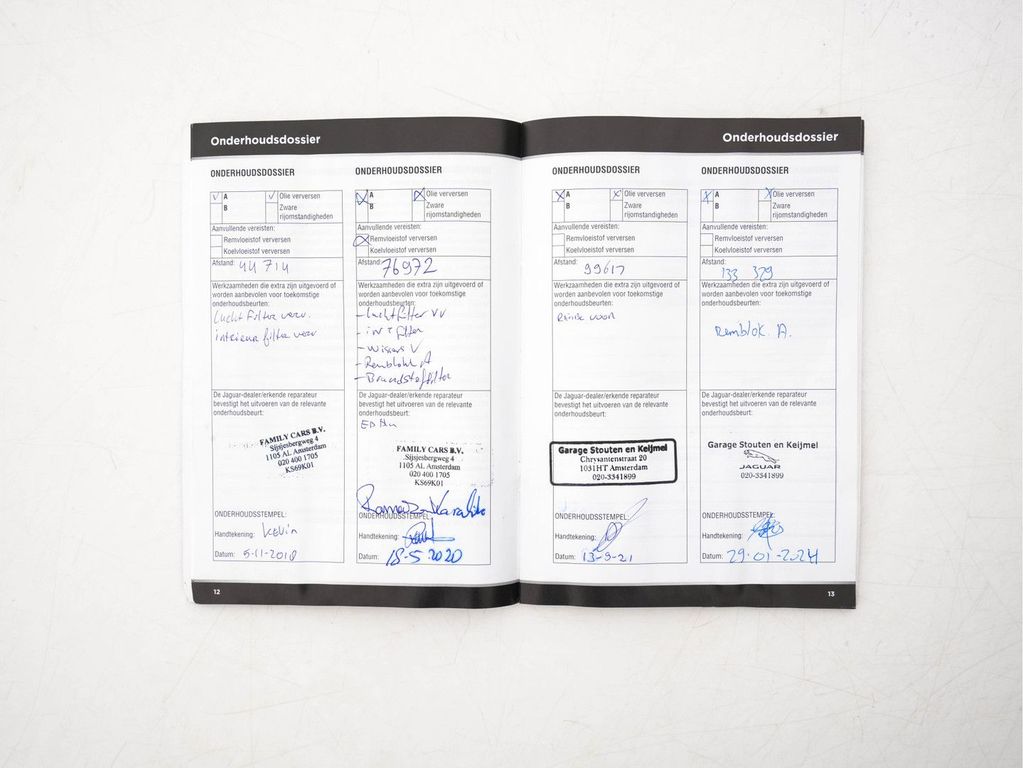 Onderhoudsdossier
ONDERHOUDSDOSSIER
A
Olie verversen
B
Zware
rijomstandigheden
Aanvullende vereisten:
Remvloeistof verversen
Koelvloeistof verversen
Afstand: 44 714
Werkzaamheden die extra zijn uitgevoerd of
worden aanbevolen voor toekomstige
onderhoudsbeurten:
Lucht Filter verv.
interieur filter verv
De Jaguar-dealer/erkende reparateur
bevestigt het uitvoeren van de relevante
onderhoudsbeurt:
FAMILY CARS B.V.
Sijsjesbergweg 4
1105 AL Amsterdam
020 400 1705
KS69K01
ONDERHOUDSSTEMPEL:
Handtekening: Kevin
Datum: 5-11-2018
12
ONDERHOUDSDOSSIER
A
Olie verversen
B
Zware
rijomstandigheden
Aanvullende vereisten:
Remvloeistof verversen
Koelvloeistof verversen
Afstand: 76972
Werkzaamheden die extra zijn uitgevoerd of
worden aanbevolen voor toekomstige
onderhoudsbeurten:
- Luchtfilter vv
- int filter
- Wissers V
- Remblokk A
- Brandstoffilter
De Jaguar-dealer/erkende reparateur
bevestigt het uitvoeren van de relevante
onderhoudsbeurt:
FAMILY CARS B.V.
Sijsjesbergweg 4
1105 AL Amsterdam
020 400 1705
KS69K01
ONDERHOUDSSTEMPEL:
Handtekening:
Datum: 18-5-2020
Onderhoudsdossier
ONDERHOUDSDOSSIER
A
Olie verversen
B
Zware
rijomstandigheden
Aanvullende vereisten:
Remvloeistof verversen
Koelvloeistof verversen
Afstand: 99617
Werkzaamheden die extra zijn uitgevoerd of
worden aanbevolen voor toekomstige
onderhoudsbeurten:
voor
De Jaguar-dealer/erkende reparateur
bevestigt het uitvoeren van de relevante
onderhoudsbeurt:
Garage Stouten en Keijmel
Chrysantenstraat 20
1031HT Amsterdam
020-3341899
ONDERHOUDSSTEMPEL:
Handtekening:
Datum: 13-9-21
ONDERHOUDSDOSSIER
A
Olie verversen
B
Zware
rijomstandigheden
Aanvullende vereisten:
Remvloeistof verversen
Koelvloeistof verversen
Afstand: 133 329
Werkzaamheden die extra zijn uitgevoerd of
worden aanbevolen voor toekomstige
onderhoudsbeurten:
Remblok. A.
De Jaguar-dealer/erkende reparateur
bevestigt het uitvoeren van de relevante
onderhoudsbeurt:
Garage Stouten en Keijmel
JAGUAR
020-3341899
ONDERHOUDSSTEMPEL:
Handtekening:
Datum: 29-01-2024
13